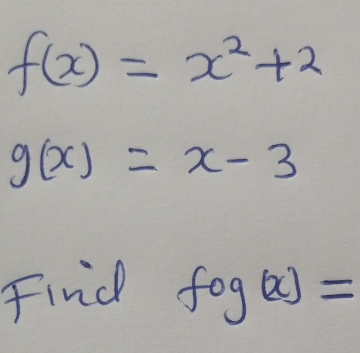 f(x) = x² + 2
g(x) = x - 3
Find fog(x) =